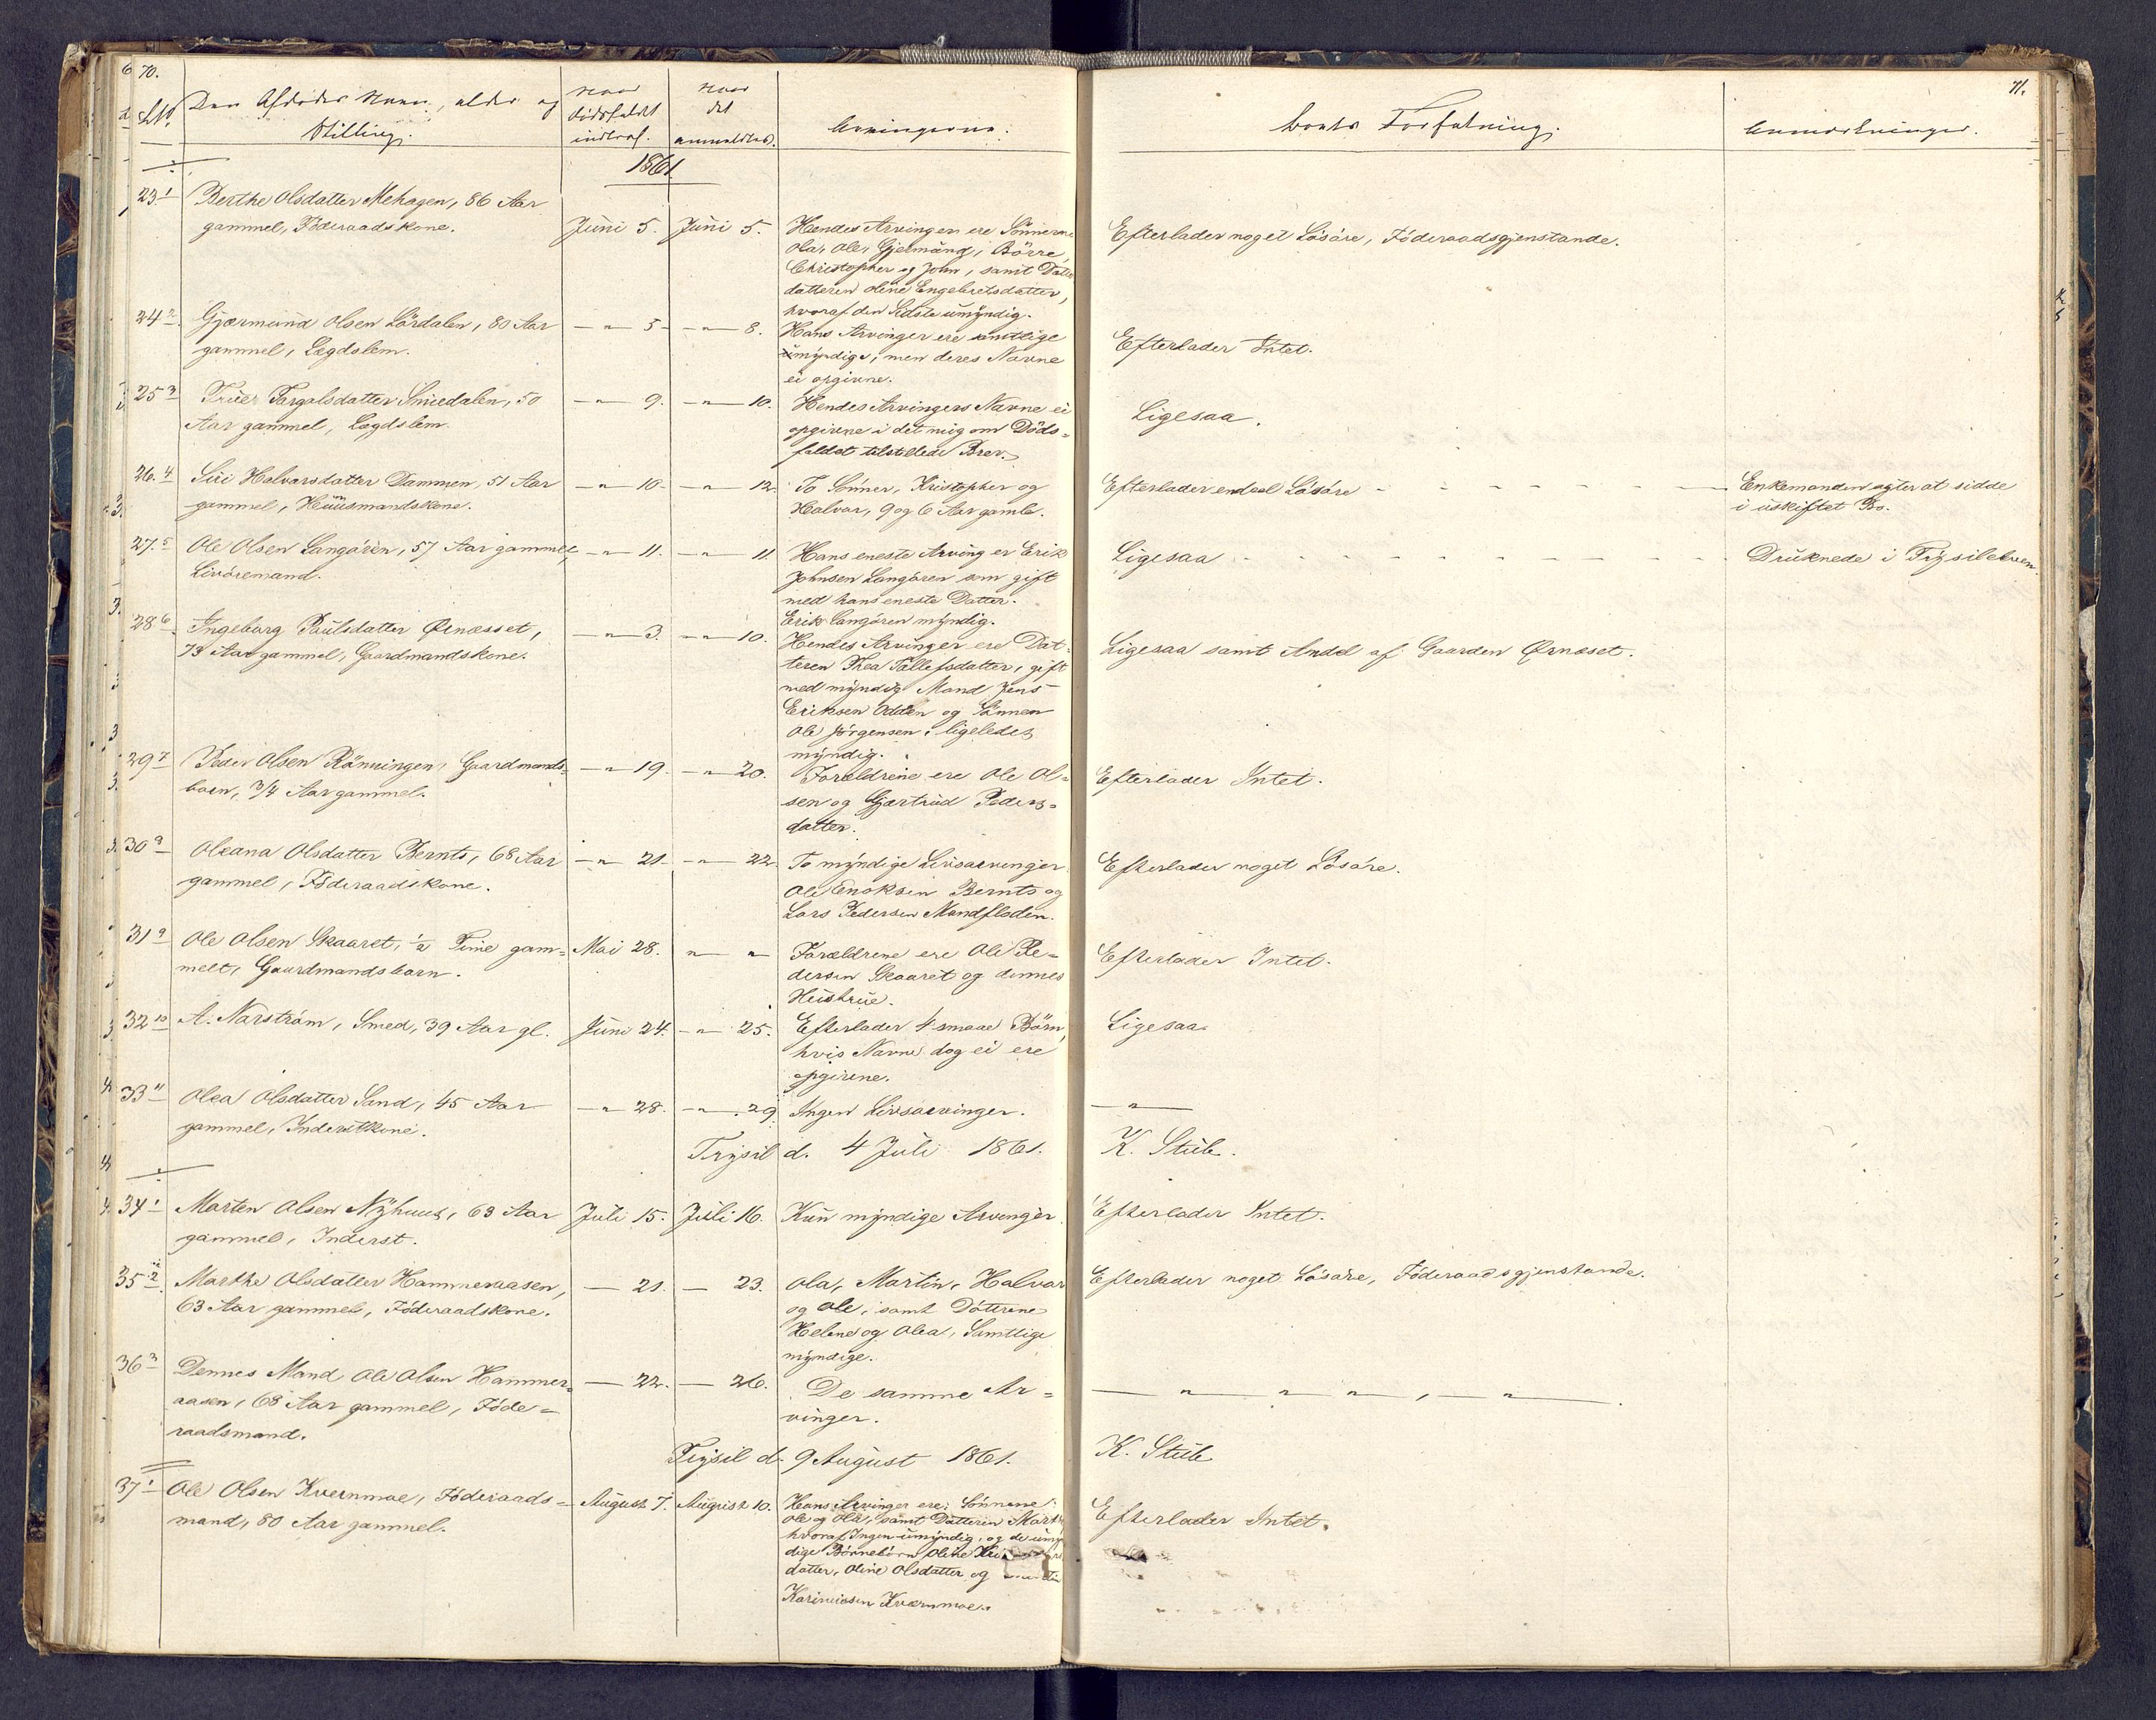 70.
No. Den Afdødes Navn, Alder og
Stilling.
Naar
Dødsfaldet
indtraf.
Naar
det
anmeldtes.
Arvingerne.
1861.
23. 1 Berthe Olsdatter Mehagen, 86 Aar
gammel, Föderaadskone.
Juni 5. Juni 5.
Hendes Arvinger ere Sönnerne
Ola, Ole, Gjelmünd, Börre,
Christopher og John, samt Datter
datteren Oline Engebretsdatter,
hvoraf den Sidste umyndig.
24 2 Gjærmund Olsen Lördalen, 80 Aar
gammel, Lægdslem.
— " 5 — " 8.
Hans Arvinger ere samtlige
myndige, men deres Navne
ei opgivne.
25 3 Targalsdatter Smedalen, 50
Aar gammel, Lægdslem.
— " 9. — " 10.
Hendes Arvingers Navne ei
opgivne i det mig om Döds=
faldet tilstillede Brev.
26. 4 Siri Halvorsdatter Dammen, 51 Aar
gammel, Huusmandskone.
— " 10 — " 12.
To Sönner, Kristopher og
Halvor, 9 og 6 Aar gamle.
27. 5 Ole Olsen Langören, 57 Aar gammel,
Livöremand.
— " 11. — " 11
Hans eneste Arving er Erik
Johnsen Langören som gift
med hans eneste Datter.
Erik Langören myndig.
28 6 Ingeborg Paulsdatter Ørnæsset,
73 Aar gammel, Gaardmandskone.
— " 3. — " 10.
Hendes Arvinger ere Dat=
teren Thea Tollefsdatter, gift
med myndig Mand Jens
Eriksen Odden og Sönnen
Ole Jörgensen, ligeledes
myndig.
29 7 Peder Olsen Rönningen, Gaardmands=
barn, 3/4 Aar gammel.
— " 19. — " 20.
Forældrene ere Ole Ol=
sen og Gjærtrud Peders=
datter.
30 8 Oleana Olsdatter Bernts, 68 Aar
gammel, Föderaadskone.
— " 21. — " 22.
To myndige Livsarvinger
Ole Enoksen Bernts og
Lars Pedersen Mandfloden.
31 9 Ole Olsen Skaaret, 1/2 Time gam=
melt, Gaardmandsbarn.
Mai 28. " "
Forældrene ere Ole Pe=
dersen Skaaret og dennes
Hustrue.
32 10 A. Narström, Smed, 39 Aar gl.
Juni 24. — " 25.
Efterlader 4 smaae Börn,
hvis Navne dog ei ere
opgivne.
33 11 Olea Olsdatter Sand, 45 Aar
gammel, Inderstkone.
— " 28. — " 29.
Ingen Livsarvinger.
Trysil d. 4 Juli 1861.
34 1 Morten Olsen Nyhuus, 63 Aar
gammel, Inderst.
Juli 15. Juli 16.
Kun myndige Arvinger.
35 2 Marthe Olsdatter Hammeraasen,
63 Aar gammel, Föderaadskone.
— 21. — 23.
Ola, Martin, Halvor
og Ole, samt Döttrene
Helene og Olea, Samtlige
myndige.
36 3 Dennes Mand Ole Olsen Hammer=
aasen, 68 Aar gammel, Föde=
raadsmand.
— 22. — 26.
De samme Ar=
vinger.
Trysil d. 9 August 1861.
37 1 Ole Olsen Kvernmoe, Föderaads=
mand, 80 Aar gammel.
August 7. August 10.
Hans Arvinger ere: Sönnene
Ole og Ola, samt Datteren
hvoraf Ingen umyndig, og de
dige Börnebörn Oline
datter, Oline Olsdatter og
Kvernmoe.
71.
Boets Forfatning.
Anmærkninger.
Efterlader noget Lösöre, Föderaadsgjenstande.
Efterlader Intet.
Ligesaa.
Efterlader endeel Lösöre
Enkemanden agter at sidde
i uskiftet Bo.
Ligesaa
Druknede i Trysilelven.
Ligesaa samt Andel af Gaarden Ørnæset.
Efterlader Intet.
Efterlader noget Lösöre.
Efterlader Intet.
Ligesaa
— " —
K. Stub.
Efterlader Intet.
Efterlader noget Lösöre, Föderaadsgjenstande.
— " " " , — " — .
K. Stub
Efterlader Intet.